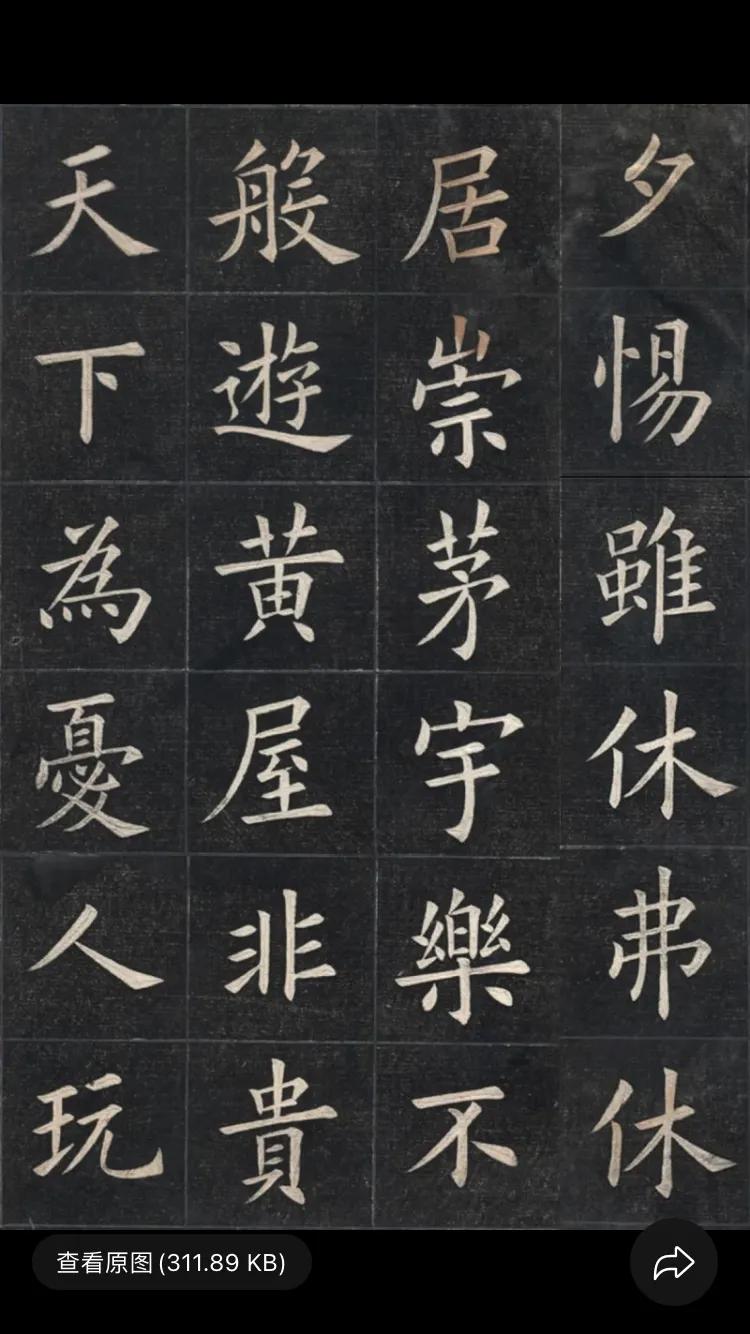 夕惕雖休弗休
居崇茅宇樂不
般遊黄屋非貴
天下為憂人玩
查看原图(311.89 KB)